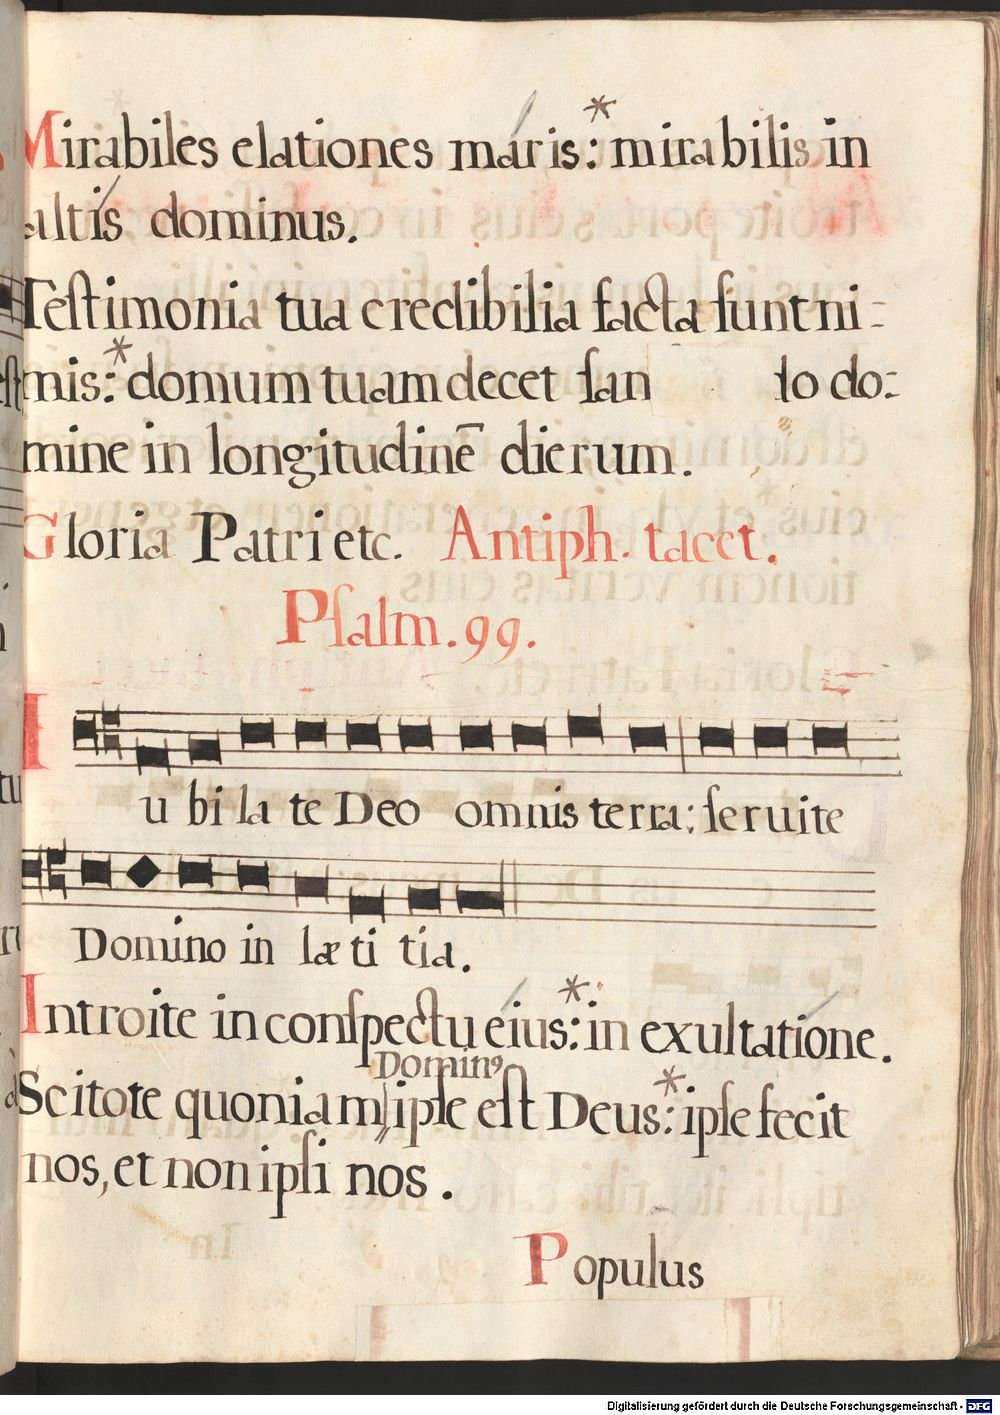 Mirabiles elationes máris:* mirabilis in
altís dominus.
Teſtimonia tua credibilia facta ſunt ni-
mis:* domum tuam decet ſan to do-
mine in longitudinē dierum.
Gloria Patri etc. Antiph. tacet.
Pſalm. 99.
Iu bi la te Deo omnis terra: ſeruite
Domino in læ ti tia.
Introite in conſpectu éius:* in exultatióne.
Domin9
Scitote quoniam ipſe eſt Deus:* ipſe fecit
nos, et non ipſi nos.
Populus
Digitalisierung gefördert durch die Deutsche Forschungsgemeinschaft - DFG